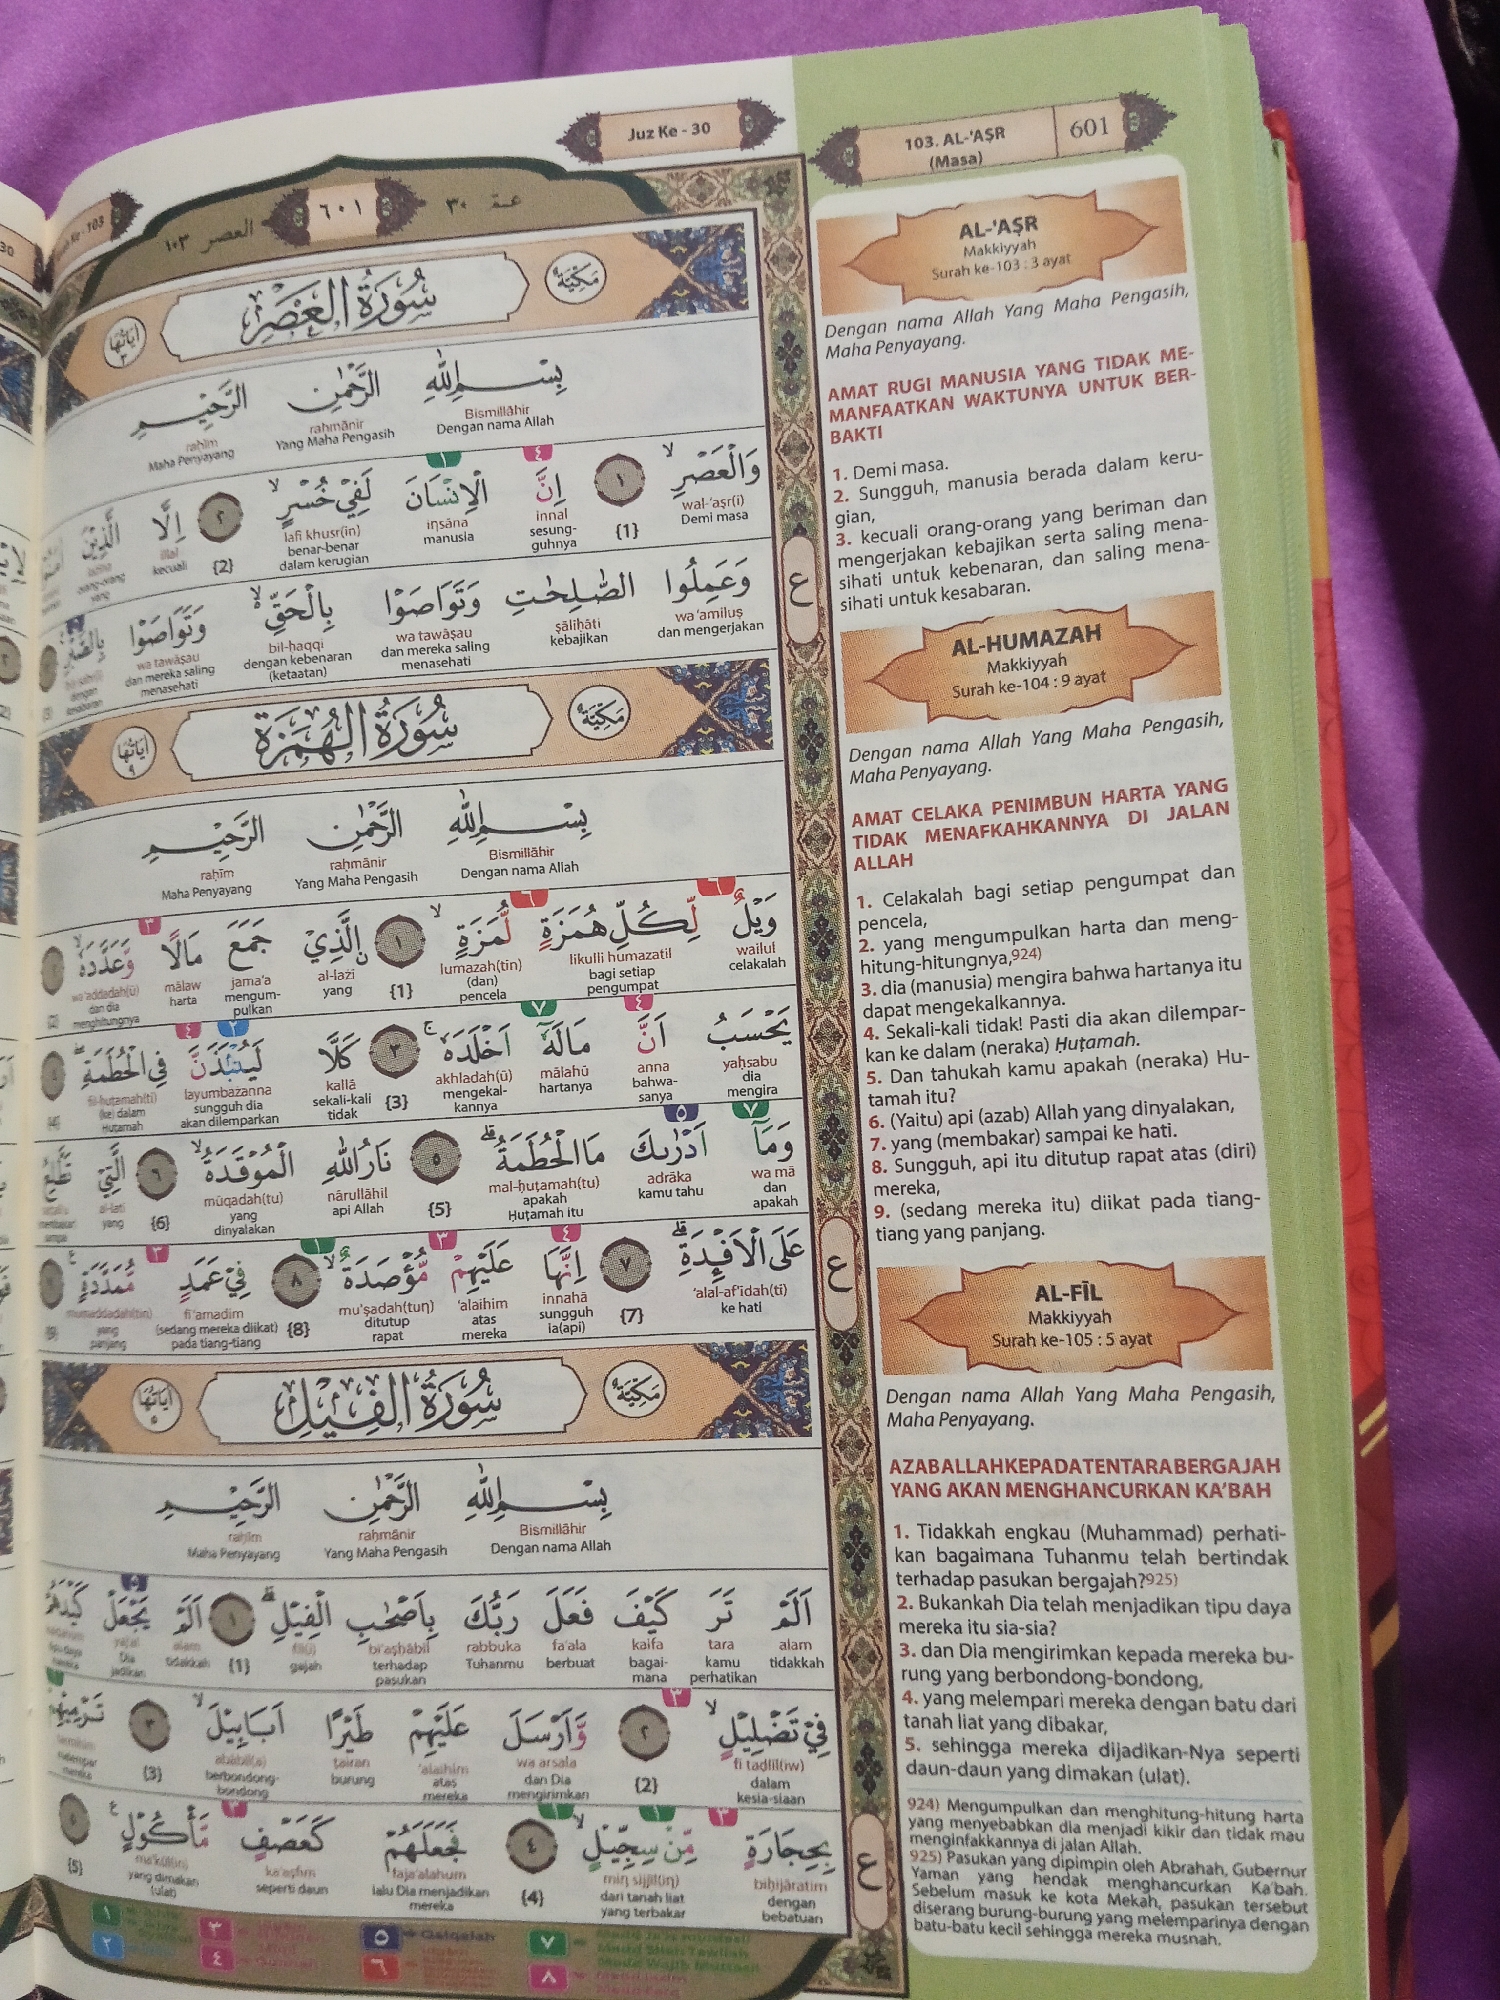 Juz Ke - 30
103. AL-'AṢR
(Masa)
601
العصر ١٠٣
٦٠١
عمّ ٣٠
سُوْرَةُ الْعَصْرِ
مَكِّيَّةٌ
اٰيَاتُهَا ٣
بِسْـــمِ اللّٰهِ الرَّحْمٰنِ الرَّحِيْمِ
Bismillāhir raḥmānir raḥīm
Dengan nama Allah Yang Maha Pengasih Maha Penyayang
وَالْعَصْرِۙ ١ اِنَّ الْاِنْسَانَ لَفِيْ خُسْرٍۙ ٢ اِلَّا الَّذِيْنَ
wal-'aṣr(i) innal iṇsāna lafī khusr(in) illal
Demi masa {1} sesung-guhnya manusia benar-benar dalam kerugian {2} kecuali orang-orang yang
وَعَمِلُوا الصّٰلِحٰتِ وَتَوَاصَوْا بِالْحَقِّ ەۙ وَتَوَاصَوْا بِالصَّبْرِ
wa 'amiluṣ ṣāliḥāti wa tawāṣau bil-ḥaqqi wa tawāṣau
dan mengerjakan kebajikan dan mereka saling menasehati dengan kebenaran (ketaatan) dan mereka saling menasehati dengan kesabaran
سُوْرَةُ الْهُمَزَةِ
مَكِّيَّةٌ
اٰيَاتُهَا ٩
بِسْـــمِ اللّٰهِ الرَّحْمٰنِ الرَّحِيْمِ
Bismillāhir raḥmānir raḥīm
Dengan nama Allah Yang Maha Pengasih Maha Penyayang
وَيْلٌ لِّكُلِّ هُمَزَةٍ لُّمَزَةٍۙ ١ ۨالَّذِيْ جَمَعَ مَالًا وَّعَدَّدَهٗۙ
wailul likulli humazatil lumazah(tin) al-lazi jama'a mālaw wa'addadah(ū)
celakalah bagi setiap pengumpat (dan) pencela {1} yang mengum-pulkan harta dan dia menghitungnya
يَحْسَبُ اَنَّ مَالَهٗٓ اَخْلَدَهٗۚ ٣ كَلَّا لَيُنْۢبَذَنَّ فِى الْحُطَمَةِۖ
yaḥsabu anna mālahū akhladah(ū) kallā layumbazanna fil-ḥuṭamah(ti)
dia mengira bahwa-sanya hartanya mengekal-kannya {3} sekali-kali tidak sungguh dia akan dilemparkan (ke) dalam Ḥuṭamah {4}
وَمَآ اَدْرٰىكَ مَا الْحُطَمَةُۗ ٥ نَارُ اللّٰهِ الْمُوْقَدَةُۙ ٦ الَّتِيْ تَطَّلِعُ
wa mā adrāka mal-ḥuṭamah(tu) nārullāhil mūqadah(tu) al-lati
dan apakah kamu tahu apakah Ḥuṭamah itu {5} api Allah yang dinyalakan {6} yang
عَلَى الْاَفْـِٕدَةِۗ ٧ اِنَّهَا عَلَيْهِمْ مُّؤْصَدَةٌۙ ٨ فِيْ عَمَدٍ مُّمَدَّدَةٍࣖ
'alal-af'idah(ti) innahā 'alaihim mu'ṣadah(tuṇ) fī'amadim mumaddadah(tin)
ke hati {7} sungguh ia(api) atas mereka ditutup rapat {8} (sedang mereka diikat) pada tiang-tiang yang panjang
سُوْرَةُ الْفِيْلِ
مَكِّيَّةٌ
اٰيَاتُهَا ٥
بِسْـــمِ اللّٰهِ الرَّحْمٰنِ الرَّحِيْمِ
Bismillāhir raḥmānir raḥīm
Dengan nama Allah Yang Maha Pengasih Maha Penyayang
اَلَمْ تَرَ كَيْفَ فَعَلَ رَبُّكَ بِاَصْحٰبِ الْفِيْلِۗ ١ اَلَمْ يَجْعَلْ كَيْدَهُمْ
alam tara kaifa fa'ala rabbuka bi'aṣḥābil fīl(i) alam yaj'al
tidakkah kamu perhatikan bagai-mana berbuat Tuhanmu terhadap pasukan gajah {1} tidakkah Dia jadikan tipu daya mereka
فِيْ تَضْلِيْلٍۙ ٢ وَّاَرْسَلَ عَلَيْهِمْ طَيْرًا اَبَابِيْلَۙ ٣ تَرْمِيْهِمْ
fī tadlīl(iw) wa arsala 'alaihim tairan abābīl(a)
dalam kesia-siaan {2} dan Dia mengirimkan atas mereka burung berbondong-bondong {3} melempar mereka
بِحِجَارَةٍ مِّنْ سِجِّيْلٍۙ ٤ فَجَعَلَهُمْ كَعَصْفٍ مَّأْكُوْلٍࣖ ٥
biḥijāratim miṇ sijjīl(iṇ) faja'alahum ka'aṣfim ma'kūl(in)
dengan bebatuan dari tanah liat yang terbakar {4} lalu Dia menjadikan mereka seperti daun yang dimakan (ulat) {5}
ع
ع
ع
AL-'AṢR
Makkiyyah
Surah ke-103 : 3 ayat
Dengan nama Allah Yang Maha Pengasih,
Maha Penyayang.
AMAT RUGI MANUSIA YANG TIDAK ME-
MANFAATKAN WAKTUNYA UNTUK BER-
BAKTI
1. Demi masa.
2. Sungguh, manusia berada dalam keru-
gian,
3. kecuali orang-orang yang beriman dan
mengerjakan kebajikan serta saling mena-
sihati untuk kebenaran, dan saling mena-
sihati untuk kesabaran.
AL-HUMAZAH
Makkiyyah
Surah ke-104 : 9 ayat
Dengan nama Allah Yang Maha Pengasih,
Maha Penyayang.
AMAT CELAKA PENIMBUN HARTA YANG
TIDAK MENAFKAHKANNYA DI JALAN
ALLAH
1. Celakalah bagi setiap pengumpat dan
pencela,
2. yang mengumpulkan harta dan meng-
hitung-hitungnya,924)
3. dia (manusia) mengira bahwa hartanya itu
dapat mengekalkannya.
4. Sekali-kali tidak! Pasti dia akan dilempar-
kan ke dalam (neraka) Ḥuṭamah.
5. Dan tahukah kamu apakah (neraka) Hu-
tamah itu?
6. (Yaitu) api (azab) Allah yang dinyalakan,
7. yang (membakar) sampai ke hati.
8. Sungguh, api itu ditutup rapat atas (diri)
mereka,
9. (sedang mereka itu) diikat pada tiang-
tiang yang panjang.
AL-FĪL
Makkiyyah
Surah ke-105 : 5 ayat
Dengan nama Allah Yang Maha Pengasih,
Maha Penyayang.
AZAB ALLAH KEPADA TENTARA BERGAJAH
YANG AKAN MENGHANCURKAN KA'BAH
1. Tidakkah engkau (Muhammad) perhati-
kan bagaimana Tuhanmu telah bertindak
terhadap pasukan bergajah?925)
2. Bukankah Dia telah menjadikan tipu daya
mereka itu sia-sia?
3. dan Dia mengirimkan kepada mereka bu-
rung yang berbondong-bondong,
4. yang melempari mereka dengan batu dari
tanah liat yang dibakar,
5. sehingga mereka dijadikan-Nya seperti
daun-daun yang dimakan (ulat).
924) Mengumpulkan dan menghitung-hitung harta
yang menyebabkan dia menjadi kikir dan tidak mau
menginfakkannya di jalan Allah.
925) Pasukan yang dipimpin oleh Abrahah, Gubernur
Yaman yang hendak menghancurkan Ka'bah.
Sebelum masuk ke kota Mekah, pasukan tersebut
diserang burung-burung yang melemparinya dengan
batu-batu kecil sehingga mereka musnah.